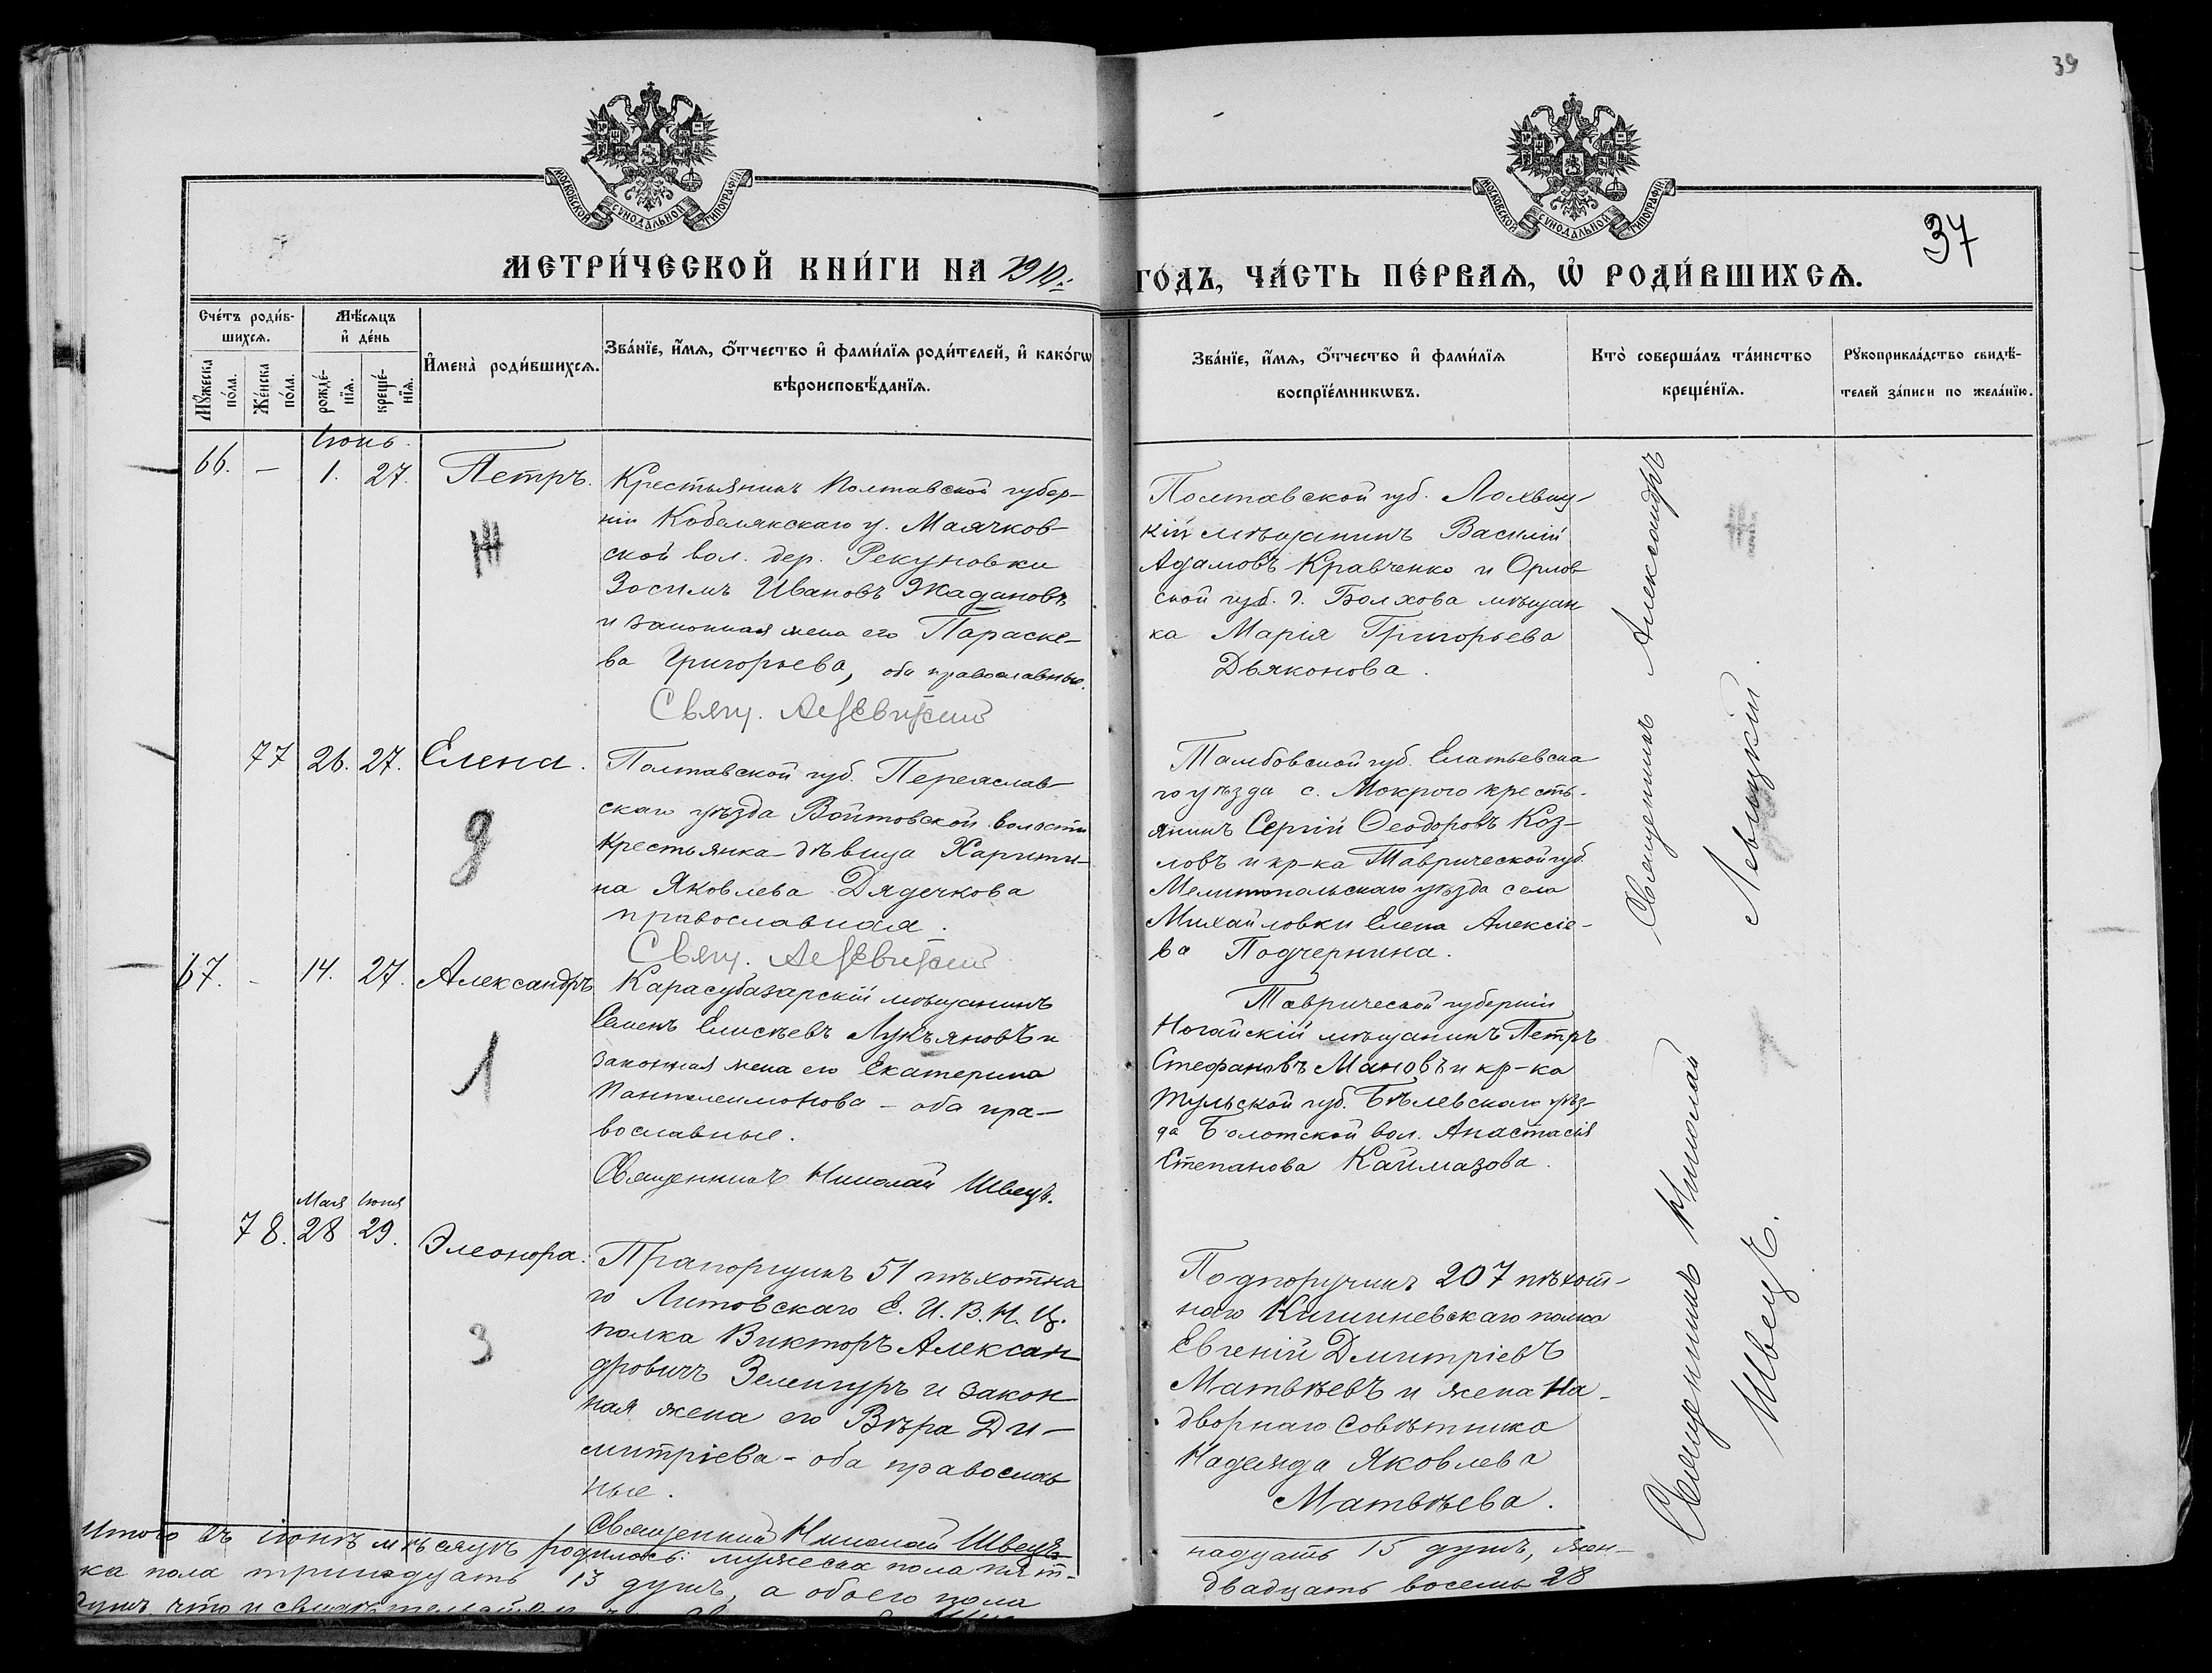 39
МОСКОВСКОЙ СУНОДАЛЬНОЙ ТИПОГРАФІИ
МОСКОВСКОЙ СУНОДАЛЬНОЙ ТИПОГРАФІИ
37
МЕТРИ́ЧЕСКОЙ КНИ́ГИ НА 1910:
ГО́ДЪ, ЧА́СТЬ ПЕ́РВАѦ, Ѡ҆ РОДИ́ВШИХСѦ.
Сче́тъ роди́в-
шихсѧ.
Мѣ́сѧцъ
и҆ де́нь
Мꙋ́жеска по́ла.
Же́нска по́ла.
рожде́-
нїѧ.
креще́-
нїѧ.
И҆мена̀ роди́вшихсѧ.
Зва́нїе, и҆́мѧ, ѻ҆́тчество и҆ фами́лїѧ роди́телей, и҆ како́гѡ
вѣроисповѣ́данїѧ.
Зва́нїе, и҆́мѧ, ѻ҆́тчество и҆ фами́лїѧ
воспрїе́мникѡвъ.
Кто̀ соверша́лъ та́инство
креще́нїѧ.
Рꙋкоприкла́дство свидѣ́-
телей за́писи по жела́нїю.
Іюнь.
66. – 1. 27. Петръ.
Крестьянинъ Полтавской губер-
ніи Кобелякскаго у. Маячков-
ской вол. дер. Рекуновки
Зосимъ Ивановъ Жадановъ
и законная жена его Параске-
ва Григорьева, оба православные.
Свящ. Ал. Левитскій
Полтавской губ. Лохвиц-
кій мѣщанинъ Василій
Адамовъ Кравченко и Орлов-
ской губ. г. Болхова мѣщан
ка Марія Григорьева
Дьяконова.
Священникъ Александръ
Левицкій.
77 26. 27. Елена.
Полтавской губ. Переяслав-
скаго уѣзда Войтовской волости
крестьянка-дѣвица Харити-
на Яковлева Дядечкова
православная.
Свящ. Ал. Левитскій
Тамбовской губ. Елатьевска
го уѣзда с. Мокрого кресть-
янинъ Сергій Ѳеодоровъ Коз-
ловъ и кр-ка Таврической губ.
Мелитопольскаго уѣзда села
Михайловки Елена Алексіе-
ва Подчернина.
67. - 14. 27. Александръ
1
Карасубазарскій мѣщанинъ
Семенъ Елисѣевъ Лукъяновъ и
законная жена его Екатерина
Пантелеимонова – оба пра-
вославные.
Священникъ Николай Швецъ.
Таврической губерніи
Ногайскій мѣщанинъ Петръ
Стефановъ Мановъ и кр-ка
Тульской губ. Бѣлевскаго уѣз-
да Болотской вол. Анастасія
Степанова Каймазова.
Священникъ Николай
Швецъ.
Мая Іюня
78. 28 29. Элеонора.
3
Прапорщикъ 51 пѣхотна
го Литовскаго Е. И. В. Н. Ц.
полка Викторъ Алексан
дровичъ Зеленгуръ и закон
ная жена его Вѣра Ди-
митріева - оба православ
ные.
Священникъ Николай Швецъ
Подпоручикъ 207 пѣхот-
наго Кишиневскаго полка
Евгеній Дмитріевъ
Матвѣевъ и жена На-
дворнаго Совѣтника
Надежда Яковлева
Матвѣева.
Итого въ іюнѣ мѣсяцѣ родилось: мужеска пола пят-
надцать 15 душъ, жен-
ска пола тринадцать 13 душъ, а обоего пола
двадцать восемь 28
душъ, что и свидѣтельствуемъ